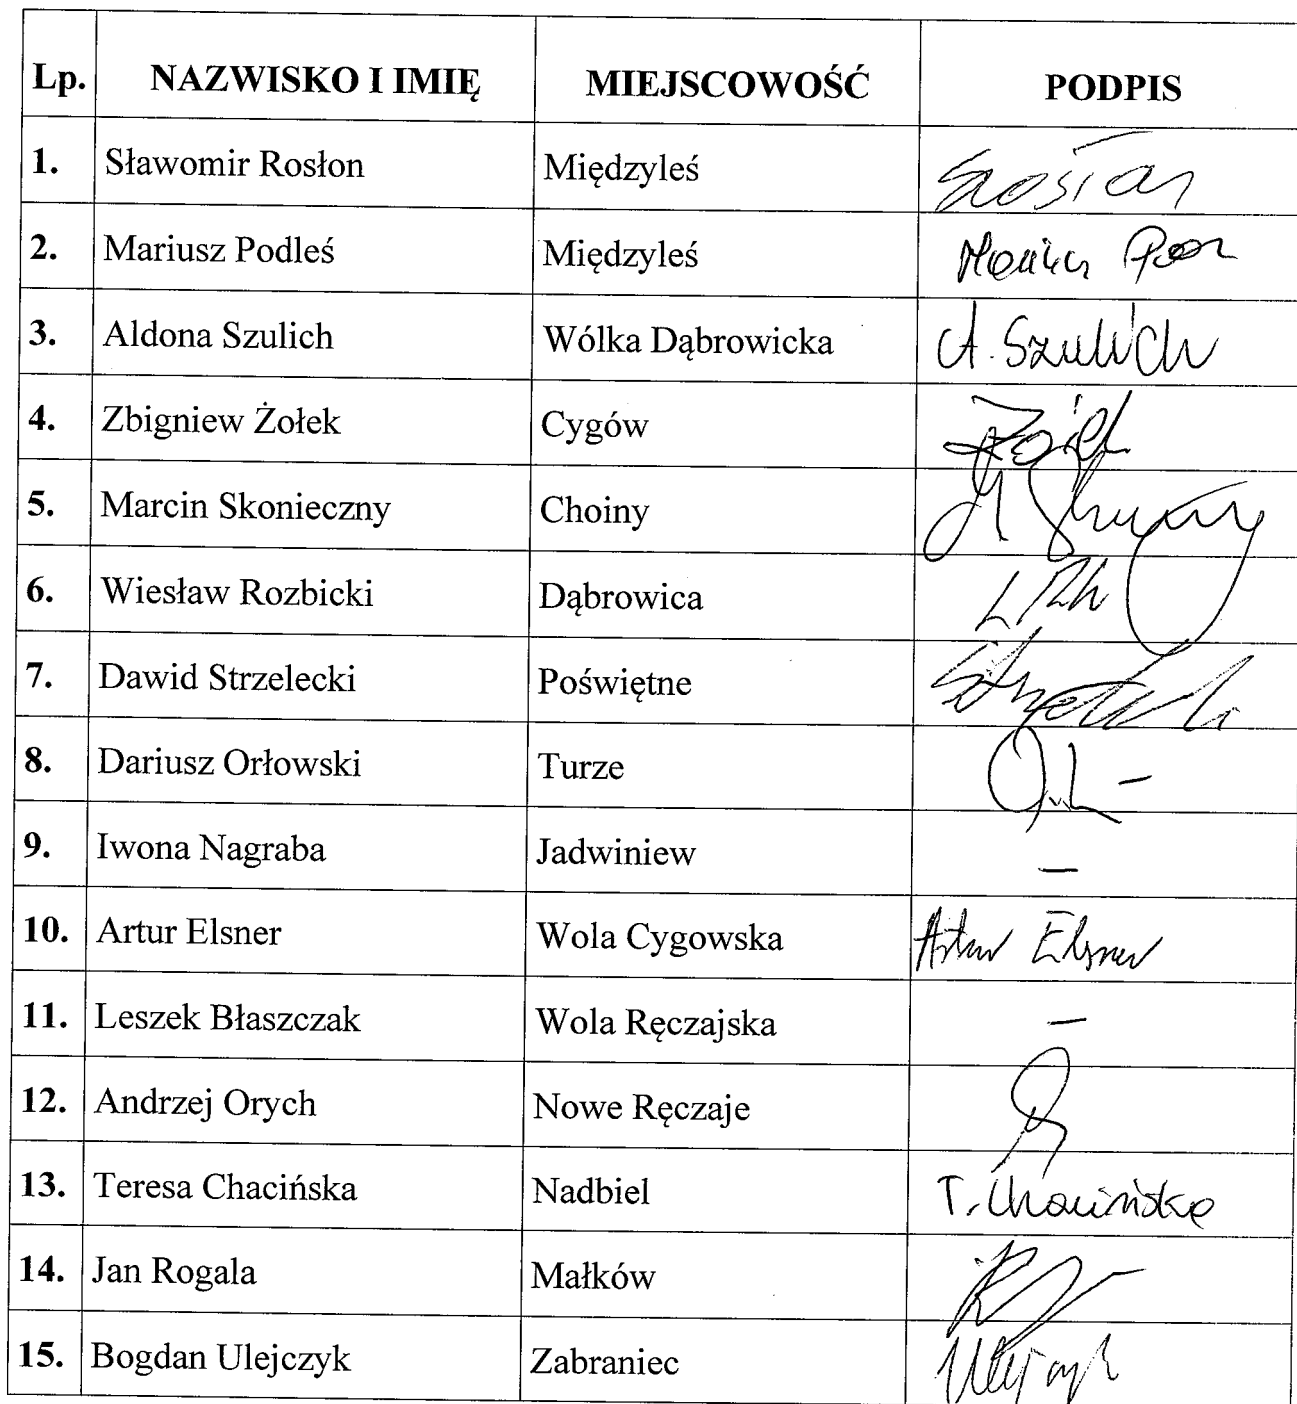 Lp. NAZWISKO I IMIĘ MIEJSCOWOŚĆ PODPIS
1. Sławomir Rosłon Międzyleś
2. Mariusz Podleś Międzyleś
3. Aldona Szulich Wólka Dąbrowicka A. Szulich
4. Zbigniew Żołek Cygów
5. Marcin Skonieczny Choiny
6. Wiesław Rozbicki Dąbrowica
7. Dawid Strzelecki Poświętne
8. Dariusz Orłowski Turze
9. Iwona Nagraba Jadwiniew –
10. Artur Elsner Wola Cygowska Artur Elsner
11. Leszek Błaszczak Wola Ręczajska –
12. Andrzej Orych Nowe Ręczaje
13. Teresa Chacińska Nadbiel T. Chacińska
14. Jan Rogala Małków
15. Bogdan Ulejczyk Zabraniec